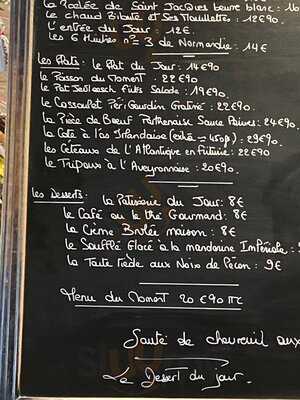 la Poêlée de Saint Jacques beurre blanc : 16
le chaud Bibute et Ses Mouillettes : 12€90.
L'entrée du Jour : 12€.
les 6 Huîtres n°= 3 de Normandie : 14€
les Plats : le Plat du Jour : 14€90
le Poisson du Moment . 22€90
le Pat Salade : 19€90.
le Cassoulet Périgourdin Gratiné : 22€90.
la Pièce de Boeuf Parthenaise Sauce Poivres : 24€90.
la Côte à l'os Irlandaise (extra ~ 450g) : 29€90.
les Couteaux de l'Atlantique en friture : 22€90
le Tripoux à l'Aveyronnaise : 20€90.
les Desserts : la Pâtisserie du Jour : 8€
le Café ou le thé Gourmand : 8€
la Crème Brûlée maison : 8€
le Soufflé Glacé à la mandarine Impériale :
la Tarte tiède aux Noix de Pécan : 9€
Menu du Moment 20€90 TTC
Sauté de chevreuil aux
Le Desert du jour.